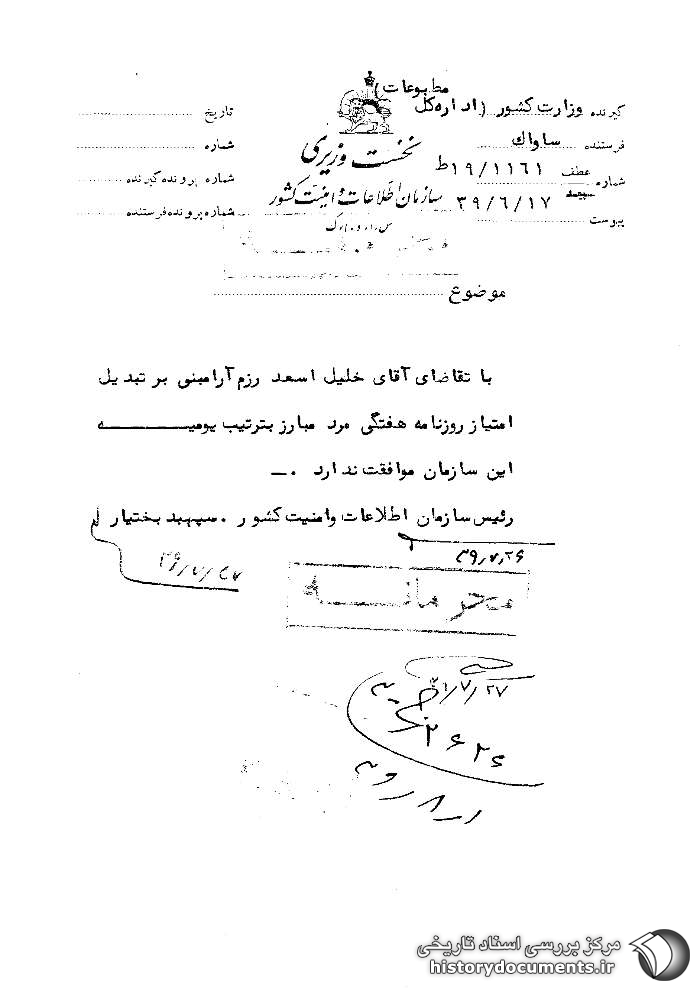 گیرنده وزارت کشور (اداره کل مطبوعات)
فرستنده ساواک
شماره عطف ۱۹/۱۱۶۱ط
۳۹/۶/۱۷
پیوست
نخست وزیری
سازمان اطلاعات و امنیت کشور
س.ا.و.ا.ک
تاریخ
شماره
شماره پرونده گیرنده
شماره پرونده فرستنده
موضوع
با تقاضای آقای خلیل اسعد رزم آرا مبنی بر تبدیل
امتیاز روزنامه هفتگی مرد مبارز بترتیب یومیه
این سازمان موافقت ندارد .ــ
رئیس سازمان اطلاعات وامنیت کشور . سپهبد بختیار
۳۹/۷/۲۶
محرمانه
۲۶۲۶
مرکز بررسی اسناد تاریخی
historydocuments.ir